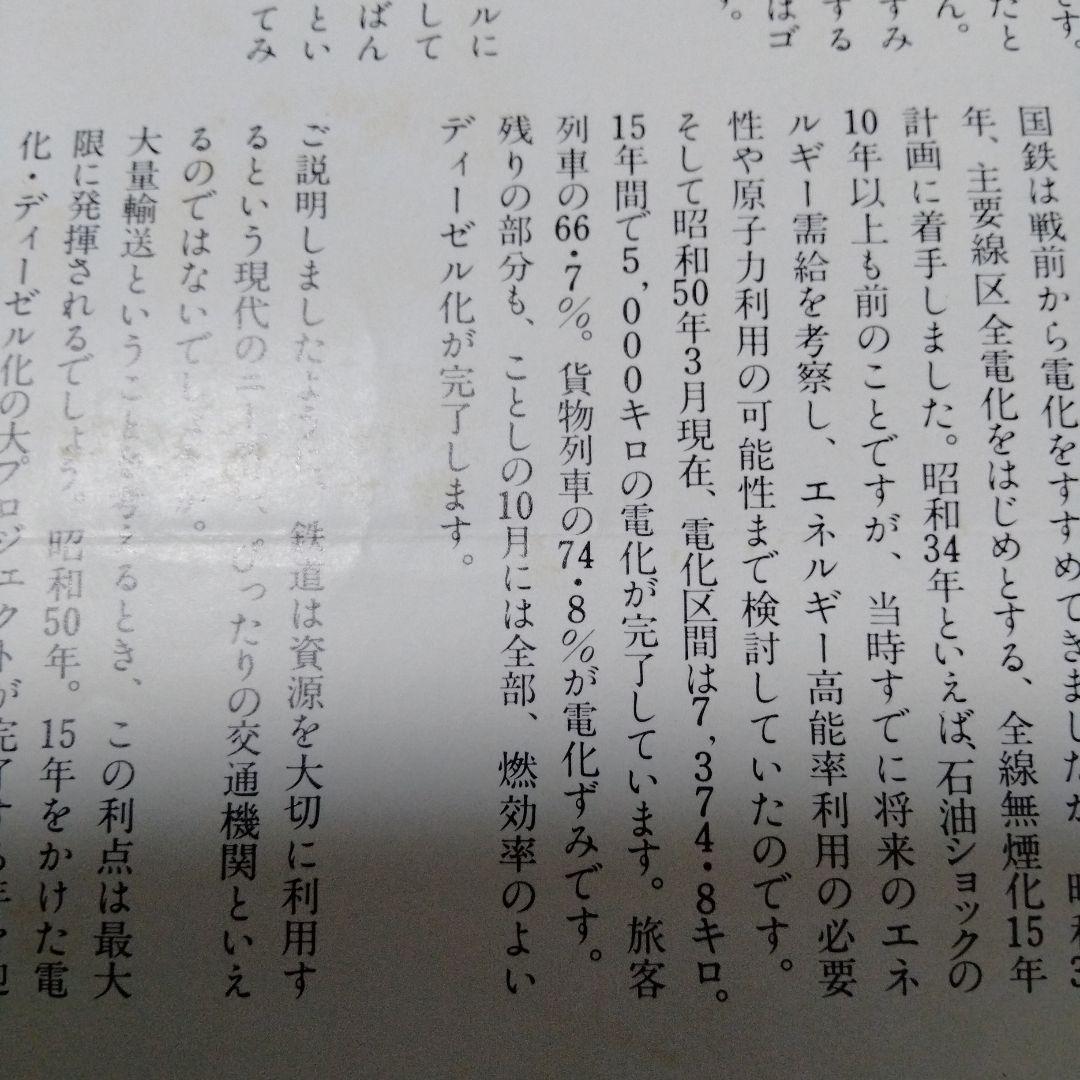 です。
たと
ん。
すみ
する
はゴ
す。
ルに
して
ばん
とい
てみ
国鉄は戦前から電化をすすめてきましたが
年、主要線区全電化をはじめとする、全線無煙化15年
計画に着手しました。昭和34年といえば、石油ショックの
10年以上も前のことですが、当時すでに将来のエネ
ルギー需給を考察し、エネルギー高能率利用の必要
性や原子力利用の可能性まで検討していたのです。
そして昭和50年3月現在、電化区間は7,374・8キロ。
15年間で5,000キロの電化が完了しています。旅客
列車の66・7%。貨物列車の74・8%が電化ずみです。
残りの部分も、ことしの10月には全部、燃効率のよい
ディーゼル化が完了します。
ご説明しましたよう 鉄道は資源を大切に利用す
るという現代のニー ぴったりの交通機関といえ
るのではないでし 。
大量輸送ということを考えるとき、この利点は最大
限に発揮されるでしょう。昭和50年。15年をかけた電
化・ディーゼル化の大プロジェクトが完了する年を迎